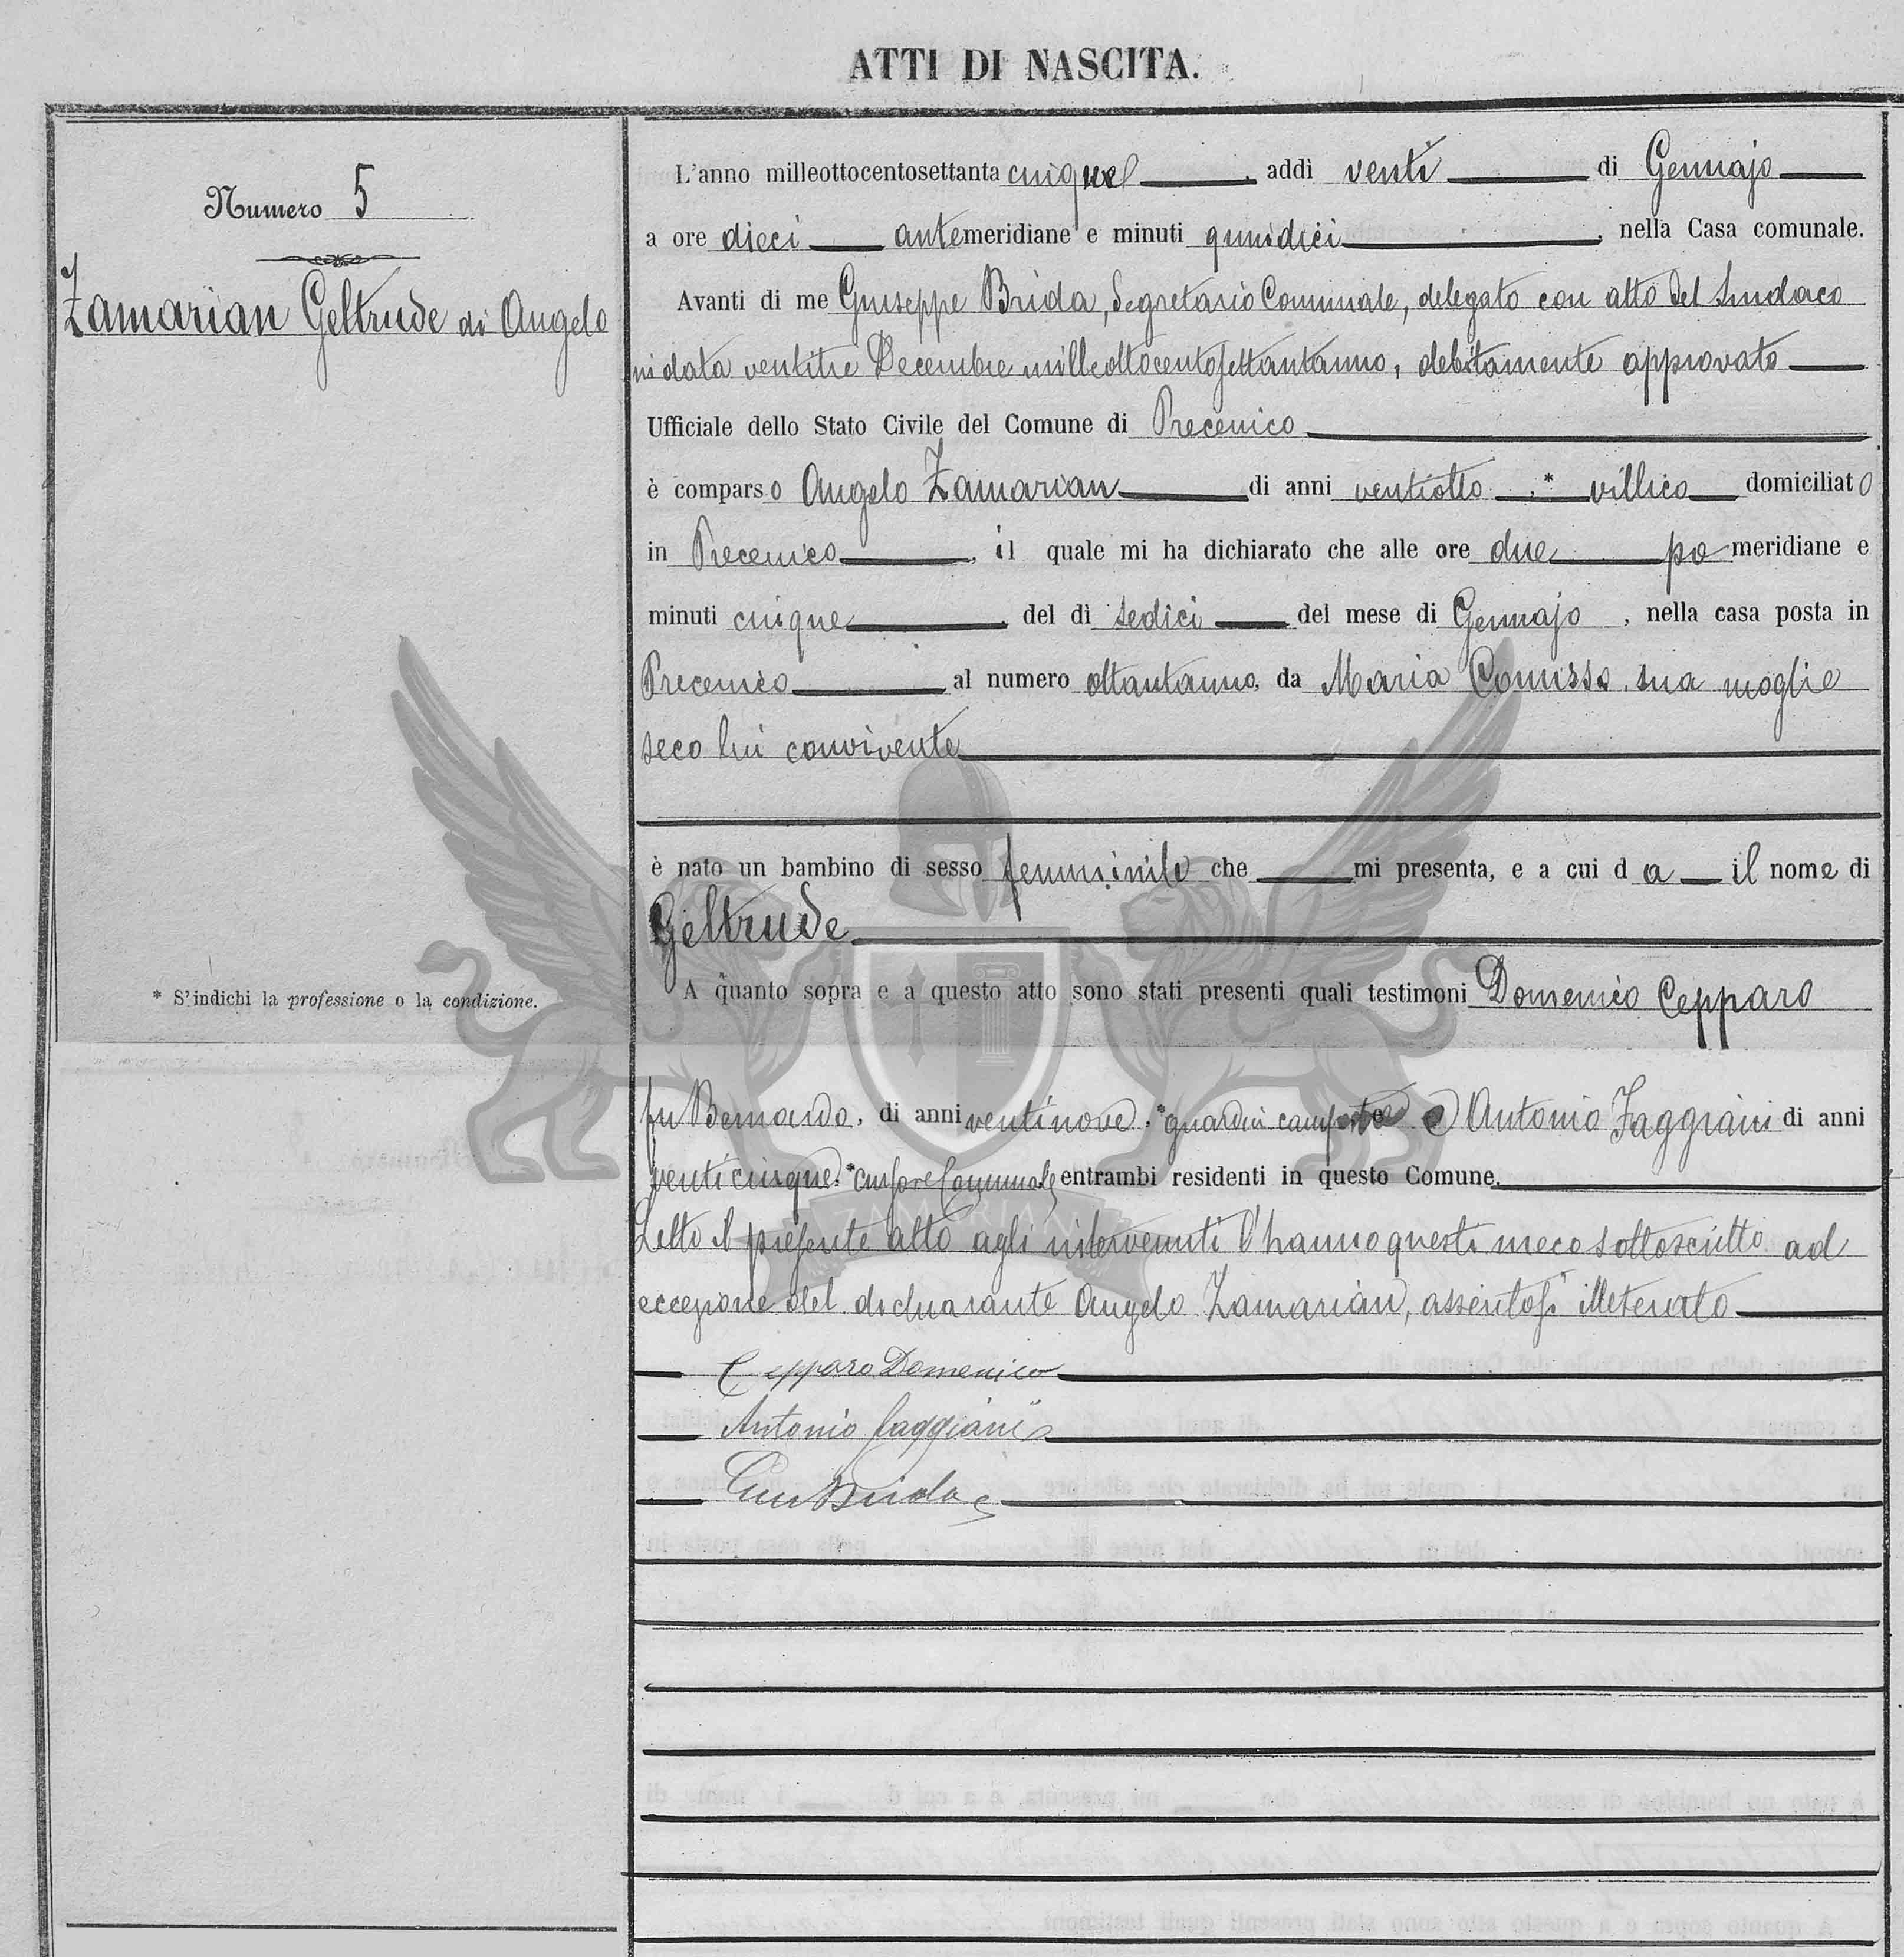 ATTI DI NASCITA.
Numero 5
Zamarian Geltrude di Angelo
* S'indichi la professione o la condizione.
L'anno milleottocentosettanta cinque, addì venti di Gennajo
a ore dieci antemeridiane e minuti quindici, nella Casa comunale.
Avanti di me Giuseppe Brida, Segretario Comunale, delegato con atto del Sindaco
in data ventitre Decembre milleottocentosettantanno, debitamente approvato
Ufficiale dello Stato Civile del Comune di Precenico
è comparso Angelo Zamarian di anni ventiotto, * villico domiciliato
in Precenico, il quale mi ha dichiarato che alle ore due pomeridiane e
minuti cinque, del dì sedici del mese di Gennajo, nella casa posta in
Precenico al numero ottantanno, da Maria Comisso, sua moglie
seco lui convivente
è nato un bambino di sesso femminile che mi presenta, e a cui da il nome di
Geltrude
A quanto sopra e a questo atto sono stati presenti quali testimoni Domenico Cepparo
fu Bernardo, di anni ventinove, * guardia campestre e Antonio Faggiani di anni
venticinque, * cursore Comunale entrambi residenti in questo Comune.
Letto il presente atto agli intervenuti l'hanno questi meco sottoscritto ad
eccezione del dichiarante Angelo Zamarian, assertosi illeterato
Cepparo Domenico
Antonio Faggiani
Gius Brida
ZAMARIAN